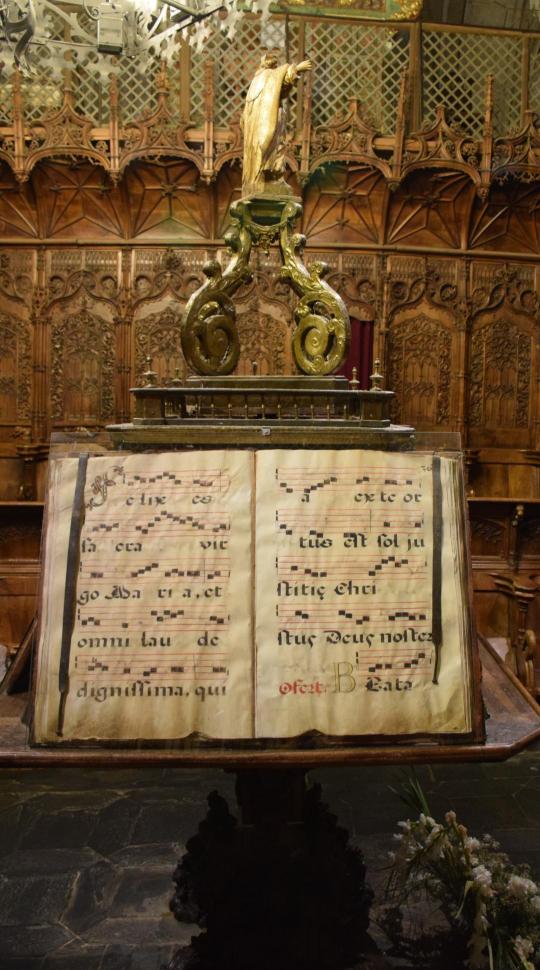 Felix es
sa cra vir
go Ma ri a, et
omni lau de
dignissima, qui
a ex te or
tus est sol ju
stitię Chri
stus Deus noster
Ofert. B Eata